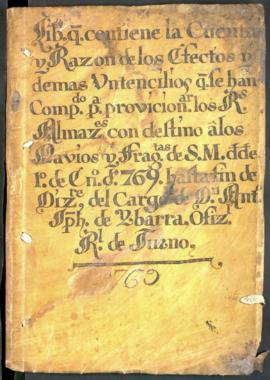 Lib.º q.e contiene la Cuenta
y Razon de los Efectos y
demas Vntencilios q.e se han
Comp.do a provicionar los R.s
Almaz.es con destino à los
Navios y Frag.tas de S.M. dde
1.º de En.º de 769. hasta fin de
Diz.re, del Cargo de D.n Ant.
Jph. de Ybarra. Ofiz.
R.l de Turno.
769